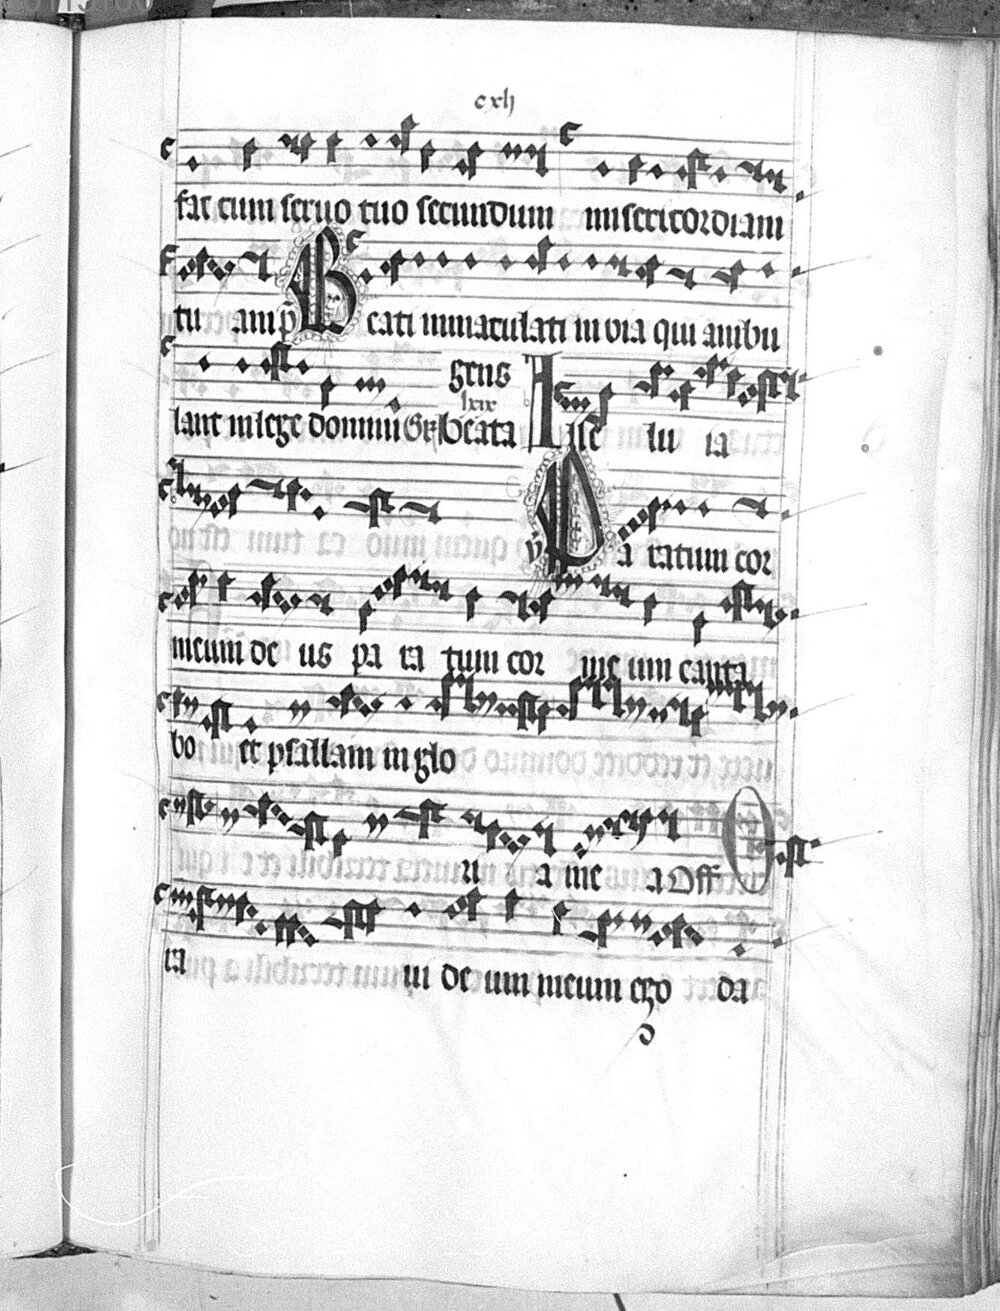 cxlj
fac cum seruo tuo secundum misericordiam
tu am p̄s Beati inmaculati in via qui ambu
lant in lege domini Gr̄ beata gens lxix Alle lu ia
v̄ Paratum cor
meum de us pa ra tum cor me um canta
bo et psallam in glo
ri a me a Off O
ra ui de um meum ego da